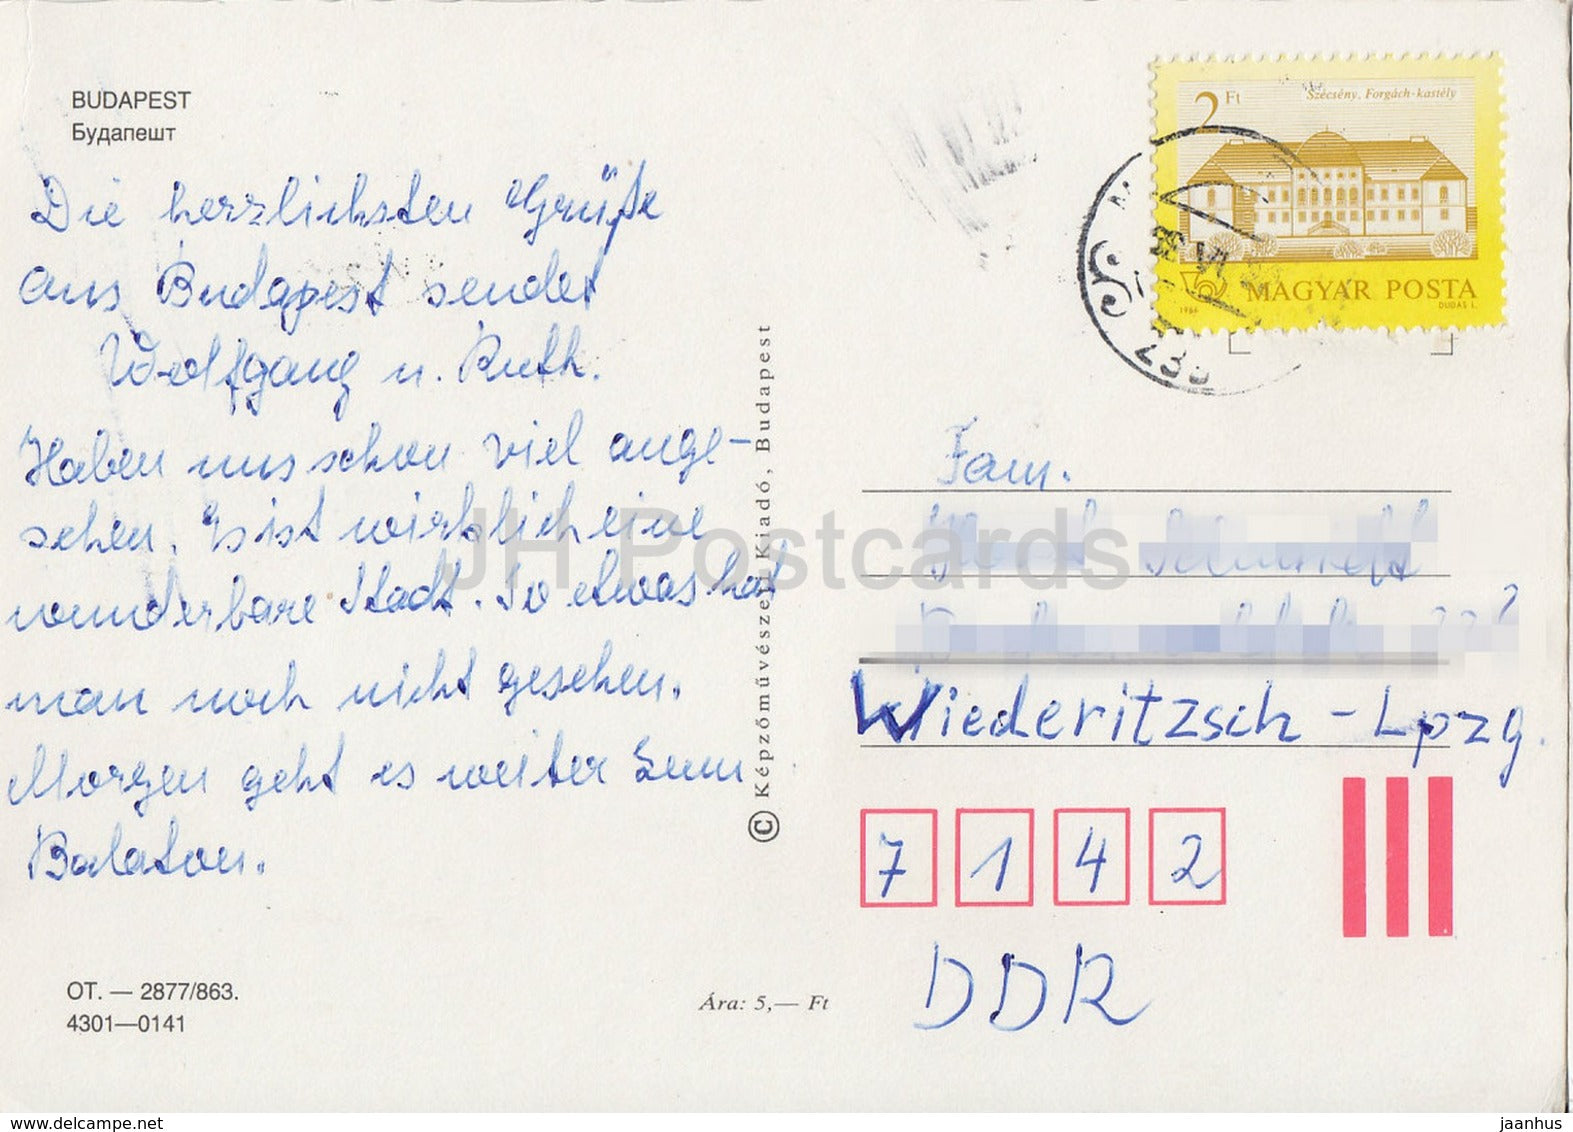 BUDAPEST
Будапешт
Die herrlichsten Grüße
aus Budapest sendet
Wolfgang u. Ruth.
Haben uns schon viel ange-
sehen. Es ist wirklich eine
wunderbare Stadt. So etwas hat
man noch nicht gesehen.
Morgen geht es weiter zum
Balaton.
OT. — 2877/863.
4301—0141
© Képzőművészeti Kiadó, Budapest
Ára: 5,— Ft
2 Ft
Szécsény, Forgách-kastély
MAGYAR POSTA
1986
DUDÁS L.
Fam.
Wiederitzsch - Lpzg.
7 1 4 2
DDR
JH Postcards
www.delcampe.net
jaanhus